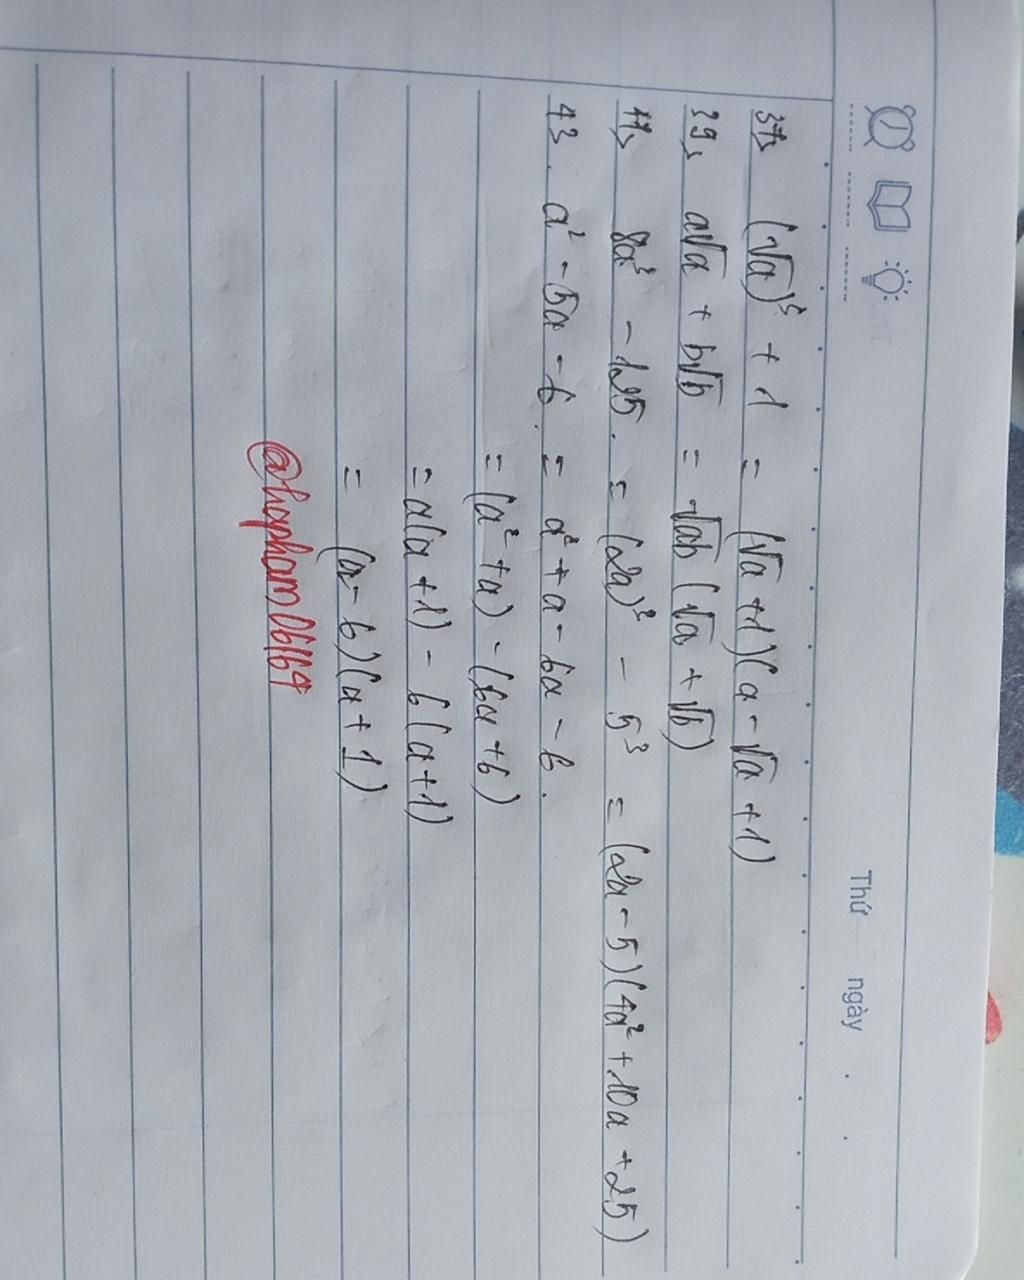 Thứ ngày
37, (√a)³ + 1 = (√a + 1)(a - √a + 1)
39, a√a + b√b = √ab (√a + √b)
41, 8a³ - 125. = (2a)³ - 5³ = (2a - 5)(4a² + 10a + 25)
43. a² - 5a - 6. = a² + a - 6a - 6.
= (a² + a) - (6a + 6)
= a(a + 1) - 6(a + 1)
= (a - 6)(a + 1)
@hapham06164